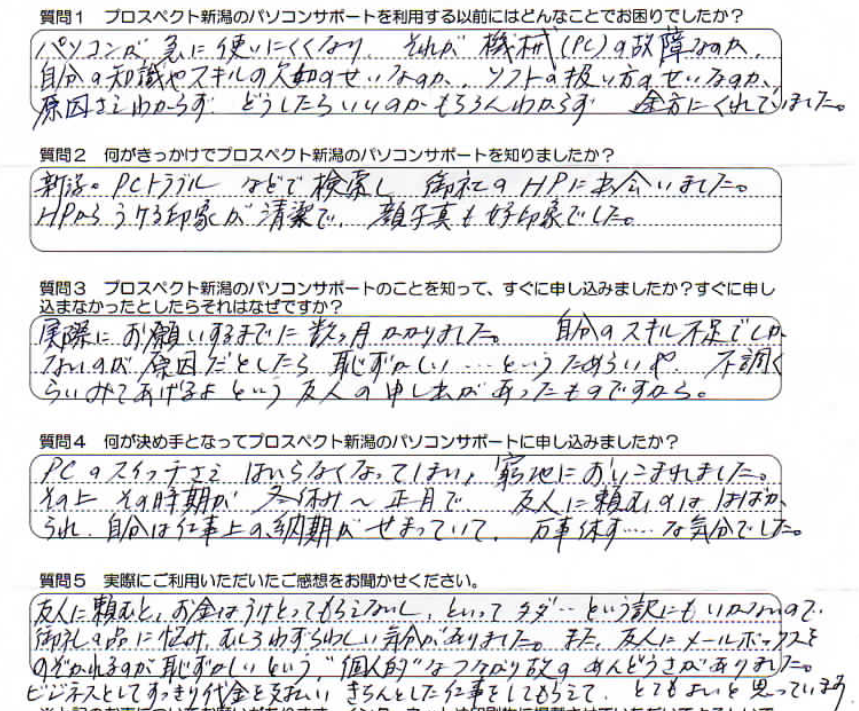 質問1　プロスペクト新潟のパソコンサポートを利用する以前にはどんなことでお困りでしたか？
パソコンが急に使いにくくなり、それが機械(PC)の故障なのか、
自分の知識やスキルの欠如のせいなのか、ソフトの扱い方のせいなのか、
原因さえわからず どうしたらいいのかもちろんわからず 途方にくれていました。
質問2　何がきっかけでプロスペクト新潟のパソコンサポートを知りましたか？
新潟。PCトラブル などで検索し 御社のHPに出会いました。
HPからうける印象が清潔で、顔写真も好印象でした。
質問3　プロスペクト新潟のパソコンサポートのことを知って、すぐに申し込みましたか？すぐに申し
込まなかったとしたらそれはなぜですか？
実際にお願いするまでに数ヶ月かかりました。 自分のスキル不足でしか
ないのが原因だとしたら恥ずかしい…というためらいや、不調く
らいみてあげるよという友人の申し出があったものですから。
質問4　何が決め手となってプロスペクト新潟のパソコンサポートに申し込みましたか？
PCのスイッチさえはいらなくなってしまい、窮地においこまれました。
その上その時期が冬休み～正月で、友人に頼むのははばか
られ、自分は仕事上の納期がせまっていて、万事休す……な気分でした。
質問5　実際にご利用いただいたご感想をお聞かせください。
友人に頼むと、お金はうけとってもらえないし、といってタダ‥という訳にもいかないので、
御礼の品に悩み、むしろわずらわしい気分がありました。また、友人にメールボックスを
のぞかれるのが恥ずかしいという、"個人的"なつながり故のめんどうさがありました。
ビジネスとしてすっきり代金を支払い きちんとした仕事をしてもらえて、とてもよいと思っています。